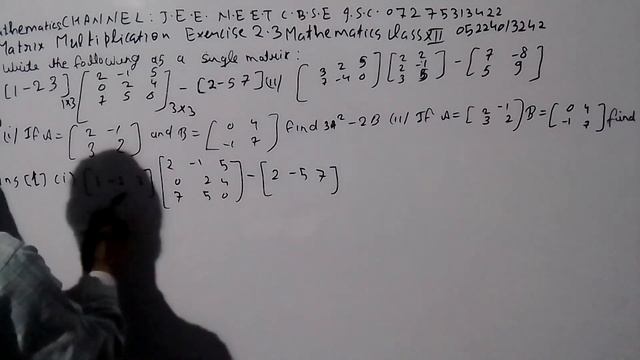 athematics CHANNEL: J.E.E. N.E.E.T C.B.S.E I.S.C. 07275313422
Matrix Multiplication Exercise 2.3 Mathematics class XII 05224013242
Write the following as a single matrix:
[1 -2 3] 1x3 [2 -1 5 0 2 4 7 5 0] 3x3 - [2 -5 7] (ii) [3 2 5 7 -4 0] [2 2 2 -1 3 5] - [7 -8 5 9]
(i) If A = [2 -1 3 2] and B = [0 4 -1 7] find 3A² - 2B (ii) If A = [2 -1 3 2] B = [0 4 -1 7] find
ns (1) (i) [2 -1 5 0 2 4 7 5 0] - [2 -5 7]